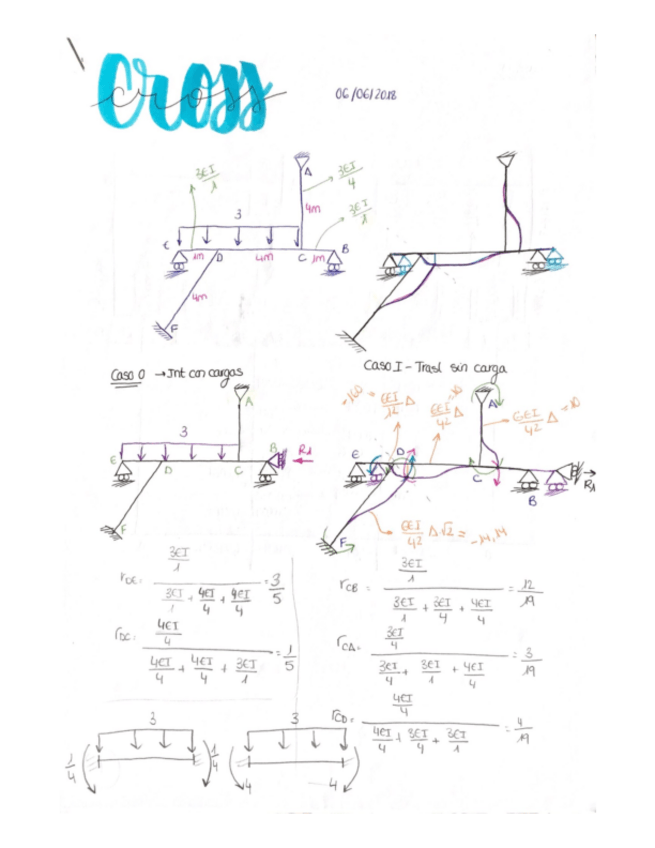 cross
06/06/2018
3EI/1
A
3EI/4
4m
3EI/1
3
E
1m
D
4m
C
1m
B
4m
F
Caso 0 → Int con cargas
Caso I - Trasl sin carga
A
3
E
D
C
B
F
-160 = 6EI/1² Δ
6EI/4² Δ = 10
A
6EI/4² Δ = 10
E
D
C
B
F
6EI/4² Δ·√2 = -14,14
rDE = (3EI/1) / (3EI/1 + 4EI/4 + 4EI/4) = 3/5
rDC = (4EI/4) / (4EI/4 + 4EI/4 + 3EI/1) = 1/5
rCB = (3EI/1) / (3EI/1 + 3EI/4 + 4EI/4) = 12/19
rCA = (3EI/4) / (3EI/4 + 3EI/1 + 4EI/4) = 3/19
rCD = (4EI/4) / (4EI/4 + 3EI/4 + 3EI/1) = 4/19
3
1/4
1/4
3
4
4